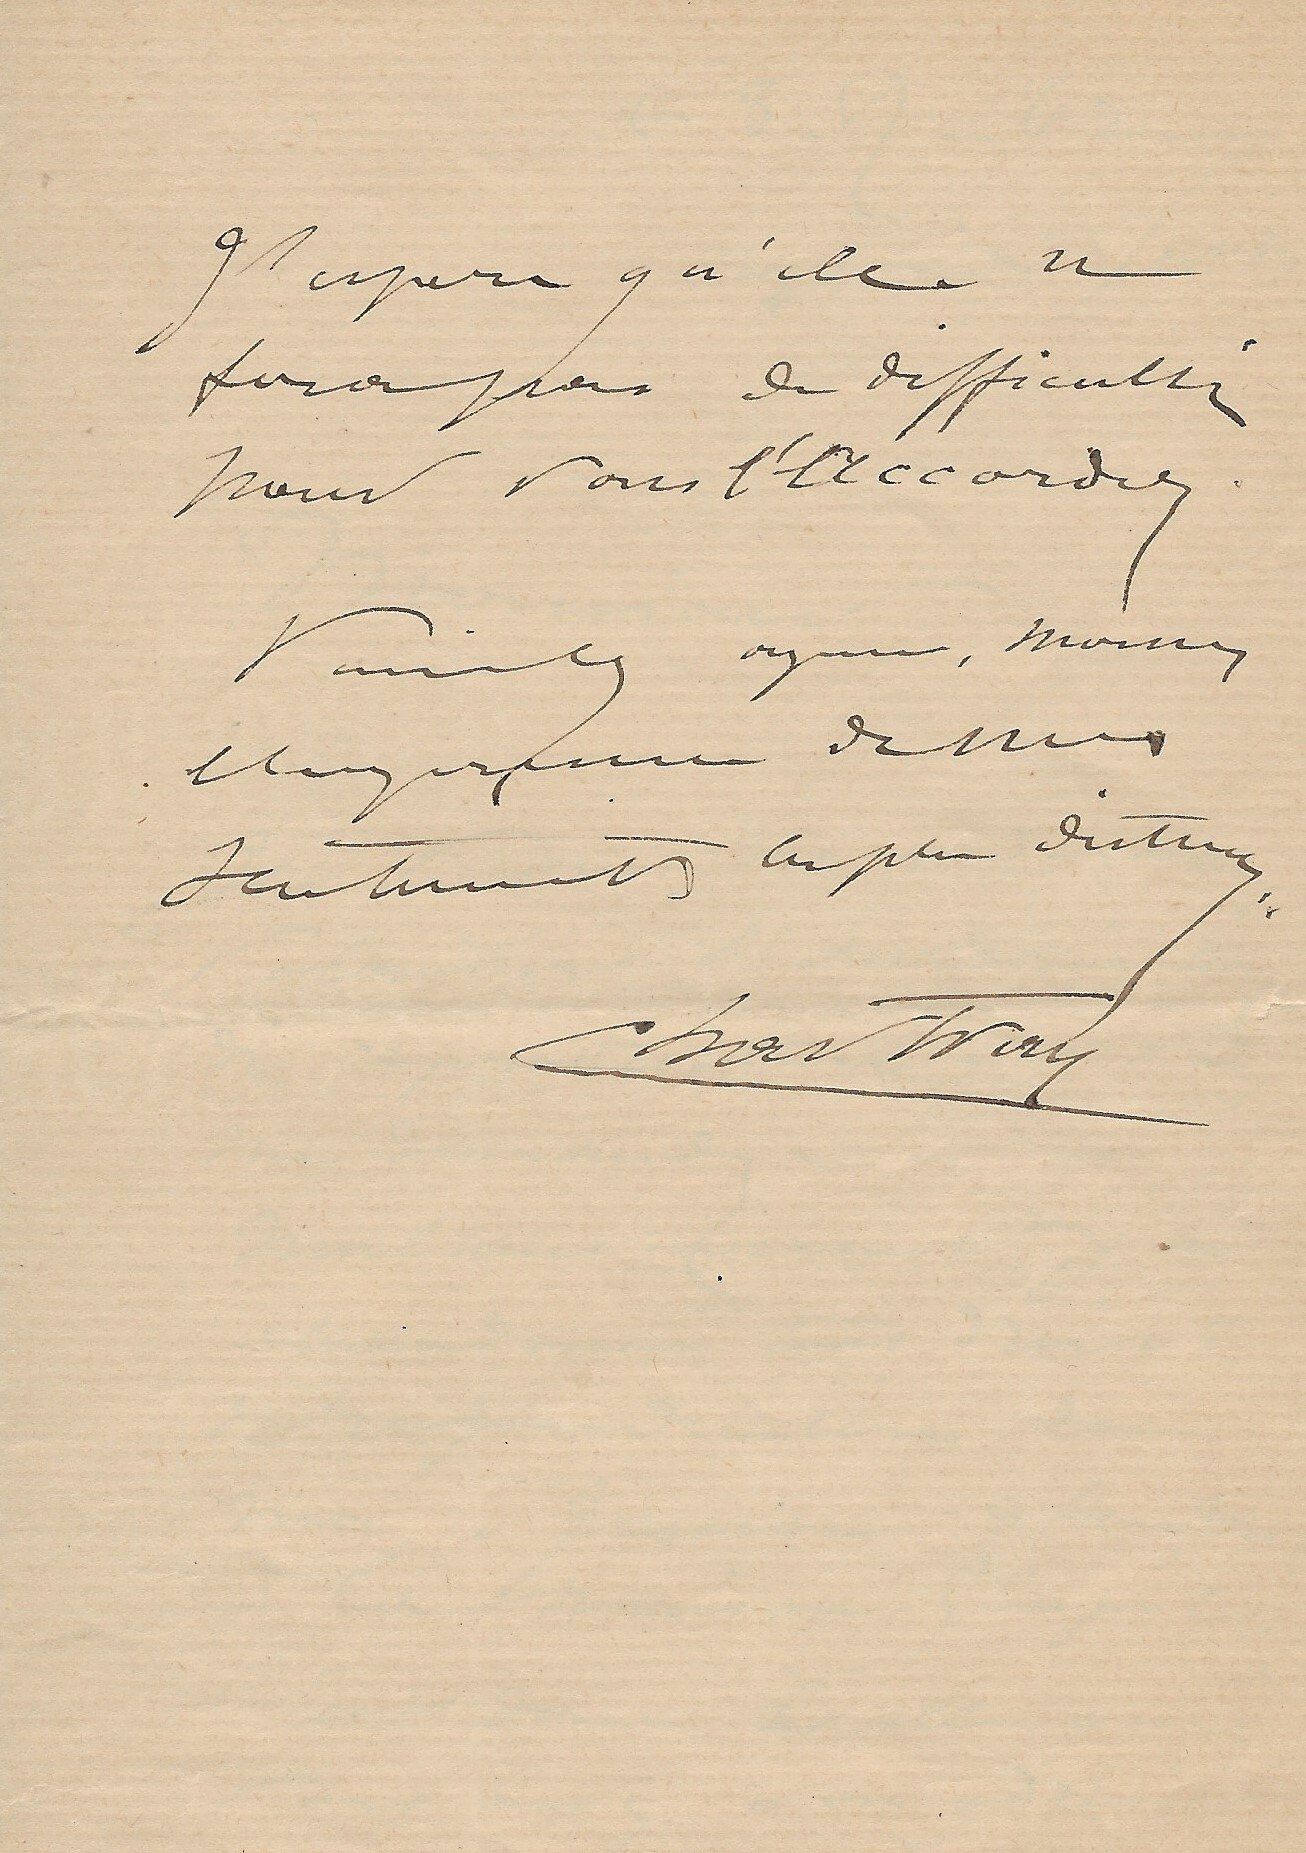 J'espère qu'elle ne
fera pas de difficulté
pour vous l'accorder.
Veuillez agréer, Monsieur
l'expression de mes
sentiments les plus distingués